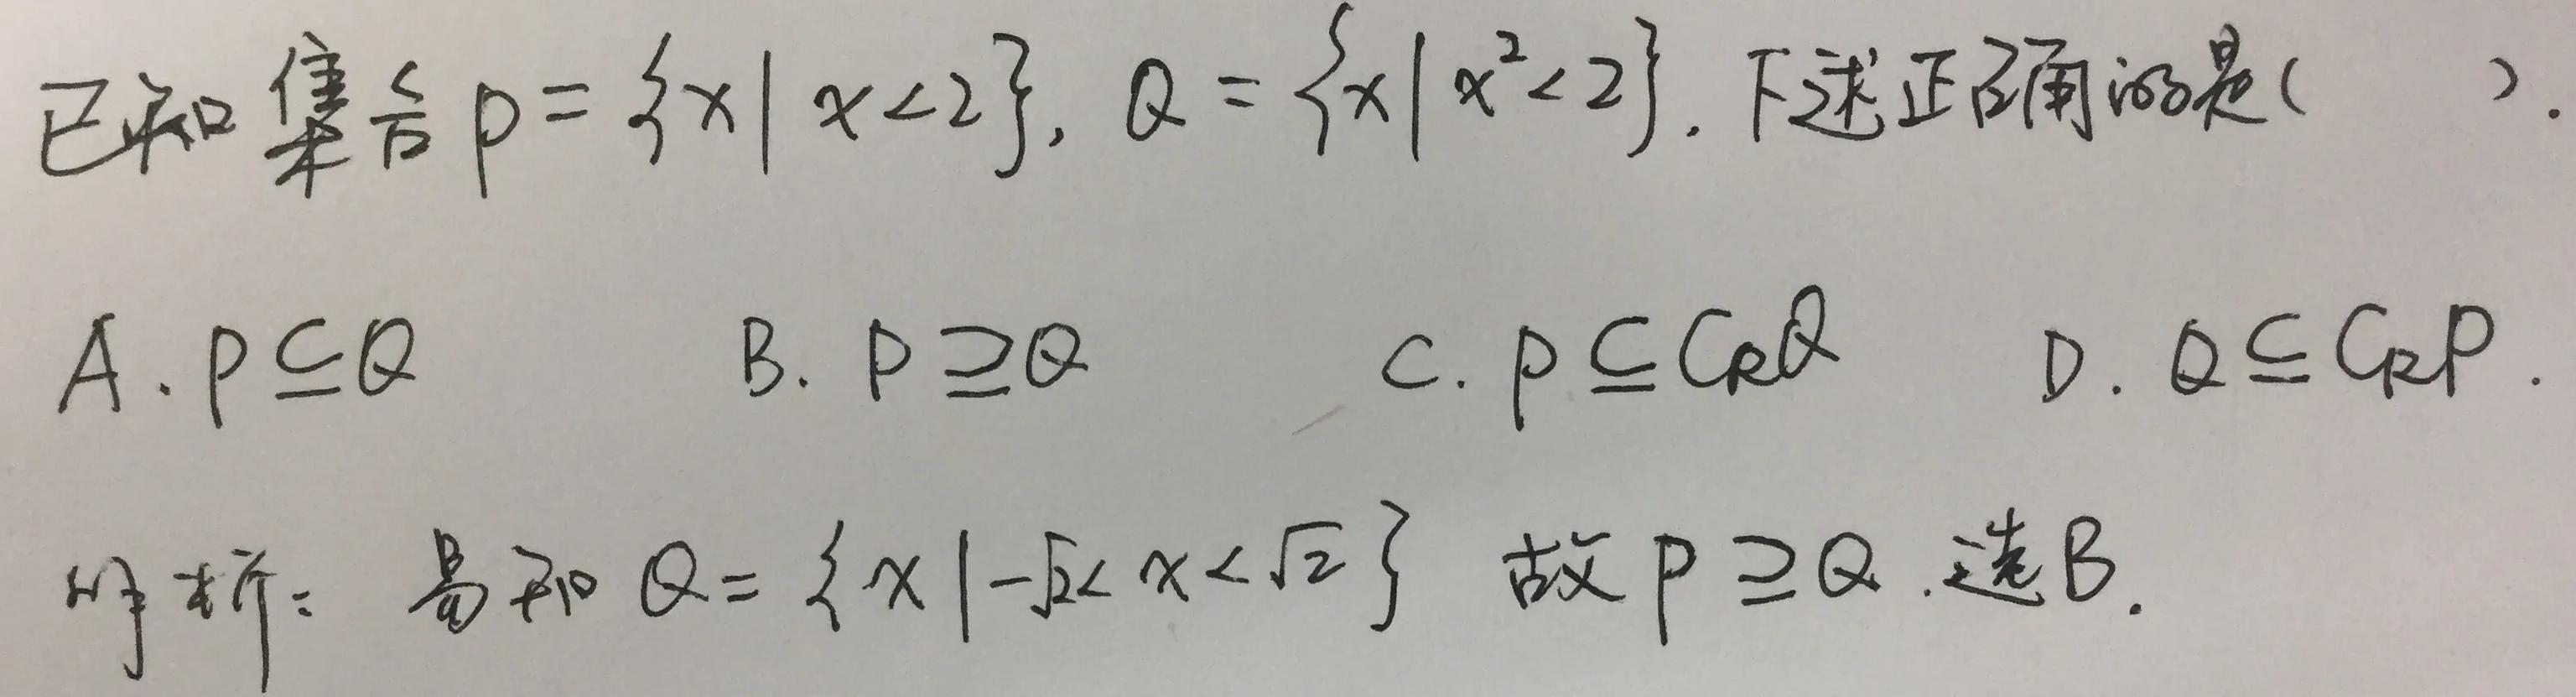 已知集合P={x|x<2}, Q={x|x²<2}. 下述正确的是( ).
A. P⊆Q B. P⊇Q C. P⊆C_RQ D. Q⊆C_RP.
解析: 易知Q={x|-√2<x<√2} 故P⊇Q. 选B.